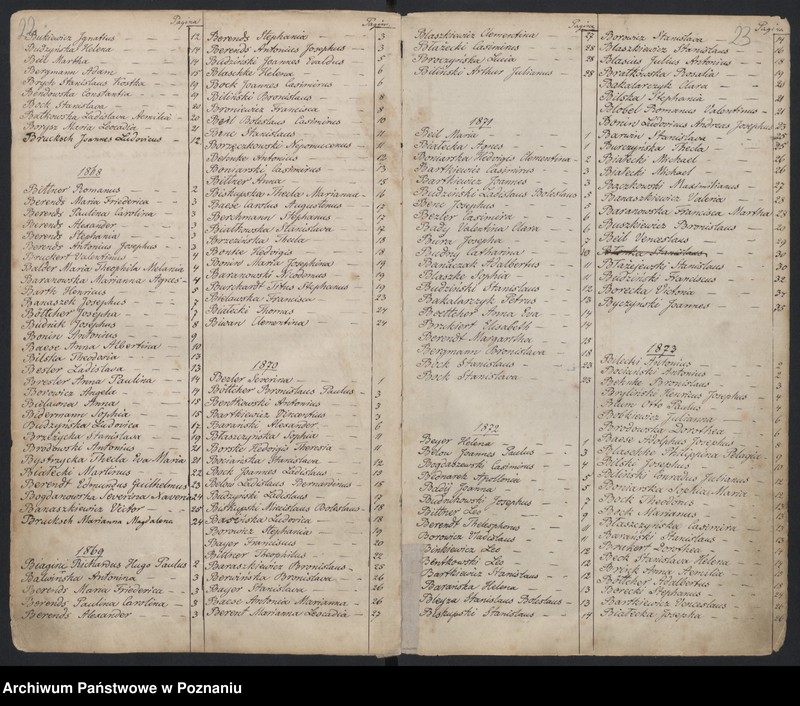 22
Pagina
Bukiewicz Ignatius 12
Budzyńska Helena 14
Beil Martha 14
Bergmann Adam 15
Boryń Stanislaus Kostka 19
Bendowska Constantia
Bock Stanislava 20
Bułkowska Ladislava Aemilia 20
Boryza Maria Leocadia 21
Brucksch Joannes Ludovicus 12
1868
Bettner Romanus 2
Berends Maria Friederica 3
Berends Paulina Carolina 3
Berends Alexander 3
Berends Stephania 3
Berends Antonius Josephus 3
Bruckert Valentinus 4
Balder Maria Theophila Melania 4
Baranowska Marianna Agnes 4
Barth Henricus 5
Banaszek Josephus 7
Böttcher Josepha 7
Budnik Josephus 8
Bonin Antonius 9
Baese Anna Albertina 10
Bilska Theodoria 13
Bester Ladislava 13
Bresler Anna Paulina 14
Borowicz Angela 14
Bielawska Anna 15
Bidermann Sophia 15
Budzyńska Ludovica 17
Brzezycka Stanislava 19
Brodowski Antonius 21
Bystrzycka Thecla Eva Maria 21
Białecki Martinus 22
Berendt Edmundus Guilhelmus 23
Bogdanowska Severina Xaveria 24
Banaszkiewicz Victor 25
Brucksch Marianna Magdalena 24
1869
Beagin Richardus Hugo Paulus 2
Balwińska Antonina 3
Berends Maria Friederica 3
Berends Paulina Carolina 3
Berends Alexander 3
Pagina
Berends Stephania 3
Berends Antonius Josephus 3
Budziński Joannes Evaldus 5
Blaschke Helena 6
Bock Joannes Casimirus 7
Biliński Bronislaus 8
Broniewicz Francisca 8
Beil Boleslaus Casimirus 10
Benc Stanislaus 11
Borzenkowski Nepomucenus 11
Behnke Antonius 12
Boncarski Casimirus 13
Bittner Anna 15
Biskupska Thecla Marianna 16
Baese Carolus Augustinus 17
Berchmann Stephanus 17
Białkowska Stanislava 17
Brzezińska Thecla 18
Bohnke Hedvigis 18
Bonow Maria Josephina 18
Baranowski Nicodemus 19
Burckardt Titus Stephanus 19
Bielawska Francisca 23
Budecki Thomas 24
Biwan Clementina 24
1870
Bezler Severina 1
Böttcher Bronislaus Paulus 3
Bentkowski Antonius 3
Bartkiewicz Vincentius 3
Barański Alexander 6
Błaszczyńska Sophia 11
Borske Hedvigis Theresia 11
Bociańska Stanislava 12
Bock Joannes Ladislaus 13
Below Ladislaus Bernardinus 15
Budzyński Ladislaus 17
Biskupski Miecislaus Boleslaus 18
Bastińska Ludovica 18
Borowicz Stephania 19
Bayer Franciscus 20
Büttner Theophilus 22
Baraszkiewicz Bronislaus 25
Berwińska Bronislava 26
Bayer Stanislava 26
Baese Antonia Marianna 26
Berent Marianna Leocadia 27
Pagina
Błaszkiewicz Clementina 27
Błażecki Casimirus 28
Broczyńska Lucia 28
Biliński Arthur Julianus 28
1871
Beil Maria 1
Białecka Agnes 1
Boniarska Hedvigis Clementina 2
Bartkiewicz Casimirus 3
Bartkiewicz Joannes 3
Budziński Ladislaus Boleslaus 5
Benc Josephus 5
Bezler Casimira 6
Brody Valentina Clara 6
Bura Josepha 7
Budny Catharina 10
Banaczak Adalbertus 11
Blaszke Sophia 11
Budziński Stanislaus 12
Bakalarczyk Petrus 13
Boettcher Anna Eva 14
Bruckiert Elisabeth 14
Berendt Margaretha 15
Bergmann Bronislava 18
Bock Stanislaus 23
Bock Stanislava 23
1872
Beyer Helena 1
Below Joannes Paulus 3
Bogdaszewski Casimirus 4
Błonarek Apollonia 4
Bzdy Joanna 5
Budnikowski Josephus 7
Bittner Leo 9
Berendt Thelesphorus 11
Borowicz Vladislaus 11
Binkiewicz Leo 12
Bentkowski Leo 12
Bartkiewicz Stanislaus 12
Barańska Helena 13
Bleyza Stanislaus Boleslaus 13
Biskupski Stanislaus 14
23
Pagina
Borowicz Stanislava 14
Błaszkiewicz Stanislaus 16
Blasius Julius Antonius 18
Bratkowska Rosalia 19
Bakalarczyk Clara 20
Bilska Stephania 21
Blobel Romanus Valentinus 21
Bonin Ludovicus Andreas Josephus 23
Barwin Stanislava 25
Burczyńska Thecla 25
Białecki Michael 26
Białecki Michael 26
Baczkowski Maximilianus 27
Banaszkiewicz Valeria 28
Baranowska Francisca Martha 28
Buszkiewicz Bronislaus 28
Beil Venceslaus 29
Stanislaus 30
Błażejewski Stanislaus 30
Budziński Franciscus 32
Borecka Victoria 34
Byczyński Joannes 35
1873
Bilecki Antonius 2
Bociański Antonius 2
Behnke Bronislaus 3
Bryliński Henricus Josephus 4
Blum Otto Paulus 4
Botkiewicz Julianna 6
Brodowska Dorothea 6
Baese Adolphus Josephus 8
Blaschke Philippina Pelagia 9
Bilski Josephus 9
Biliński Conradus Julianus 11
Boniarska Sophia Maria 12
Bock Theodosius 13
Bock Marianus 13
Błaszczyńska Casimira 13
Barański Stanislaus 13
Bruckert Dorothea 14
Bock Stanislava Helena 14
Bryńsk Anna Amilia 14
Böttcher Adalbertus 14
Borecki Stephanus 15
Bartkiewicz Ponceslaus 16
Białecka Josepha 16
Archiwum Państwowe w Poznaniu